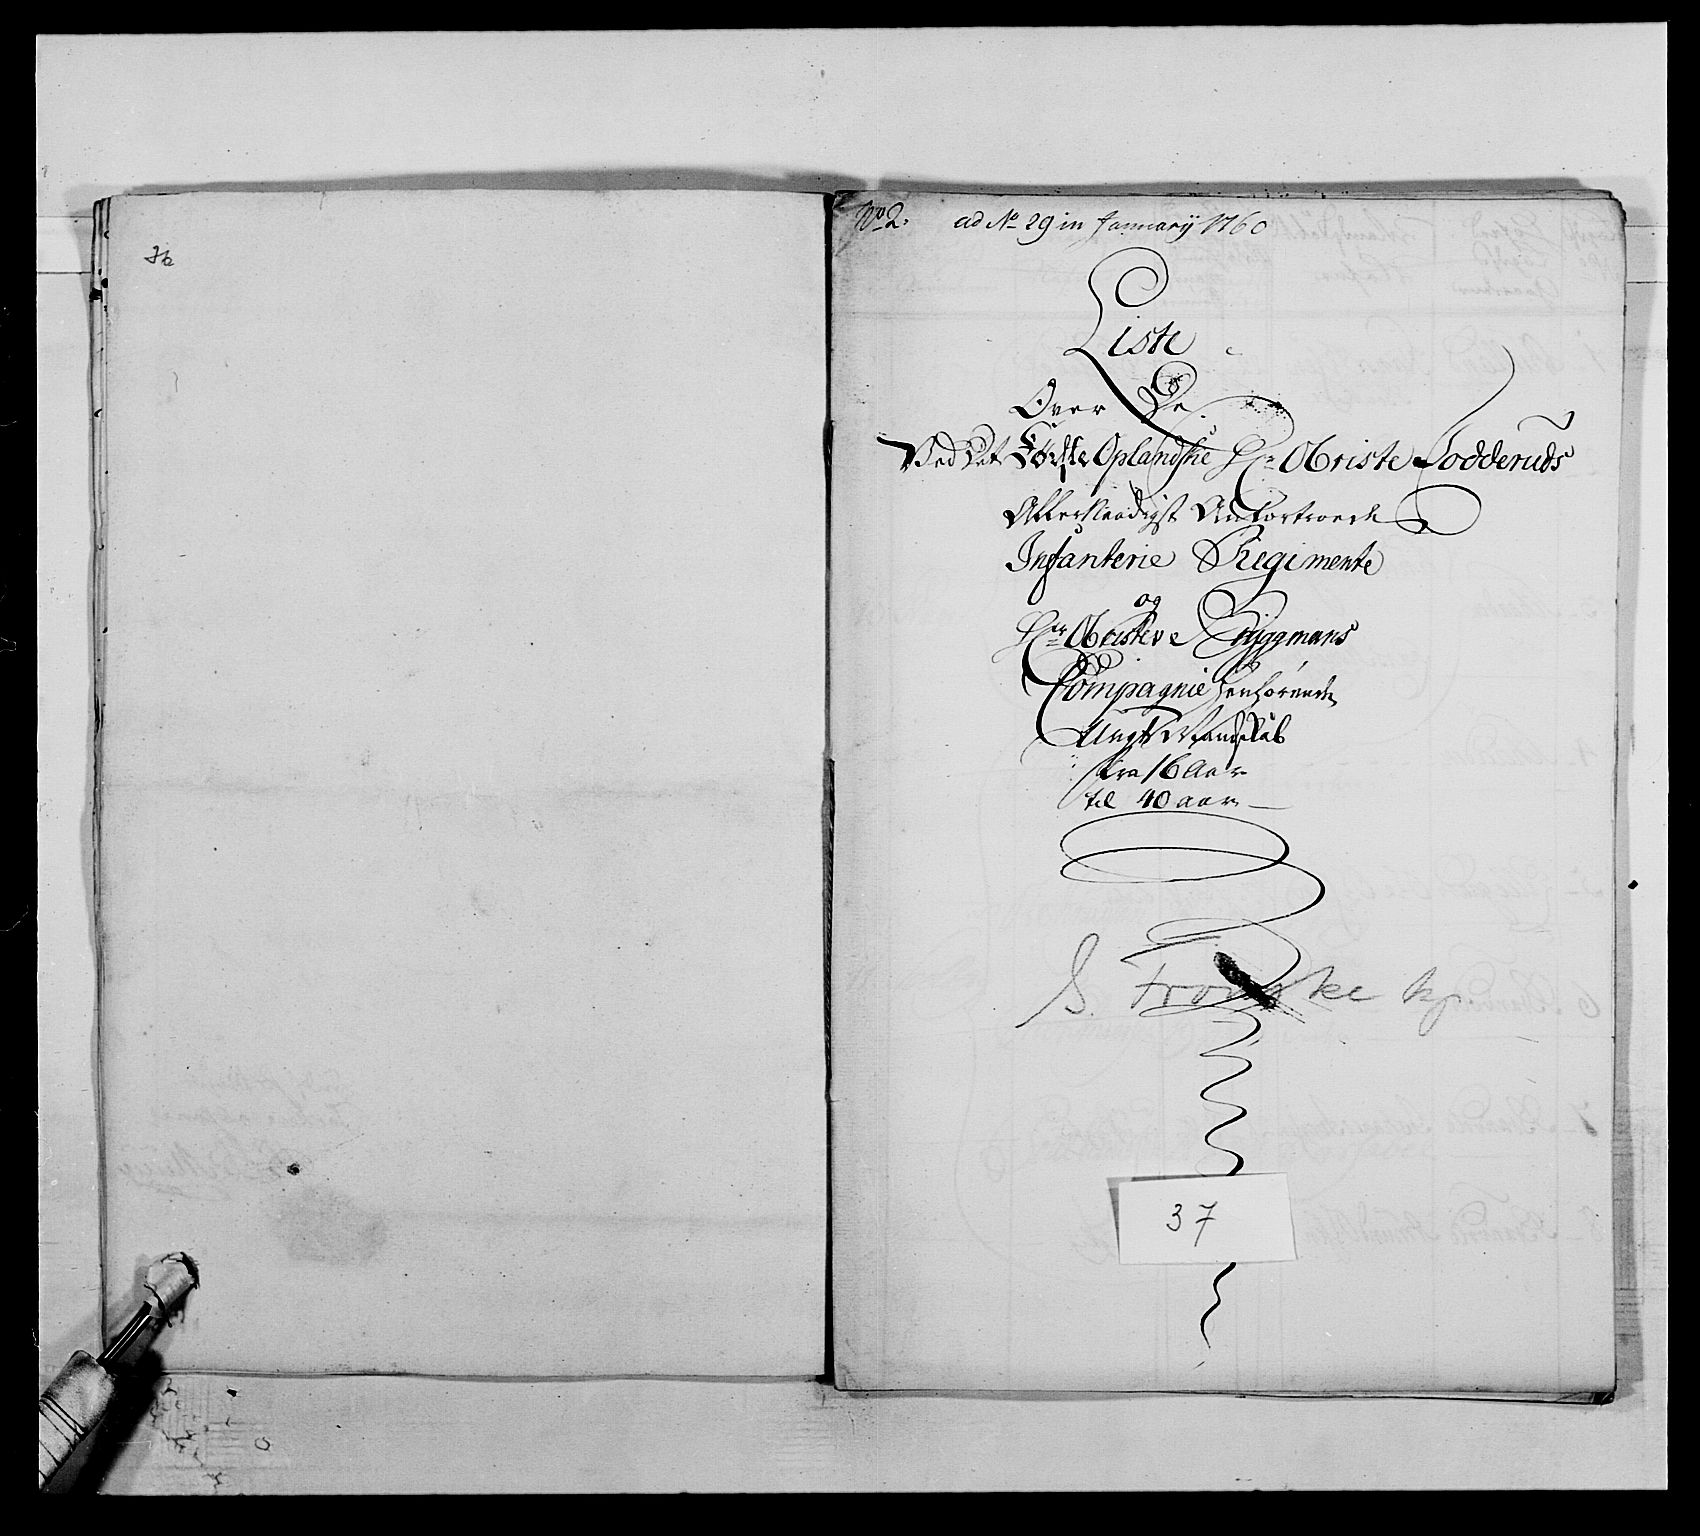 No 2. ad No 29 in January 1760
Liste
Over De
Ved Det Første Oplandske Hr. Obriste Lodderuds
Allernaadigst Anfortroede
Infanterie Regimente
og
Hr. Obristl. v. Bryggmans
Compagnie henhørende
Ungt Mandskab
fra 16 Aar
til 40 aar
S. Fronske kp.
37